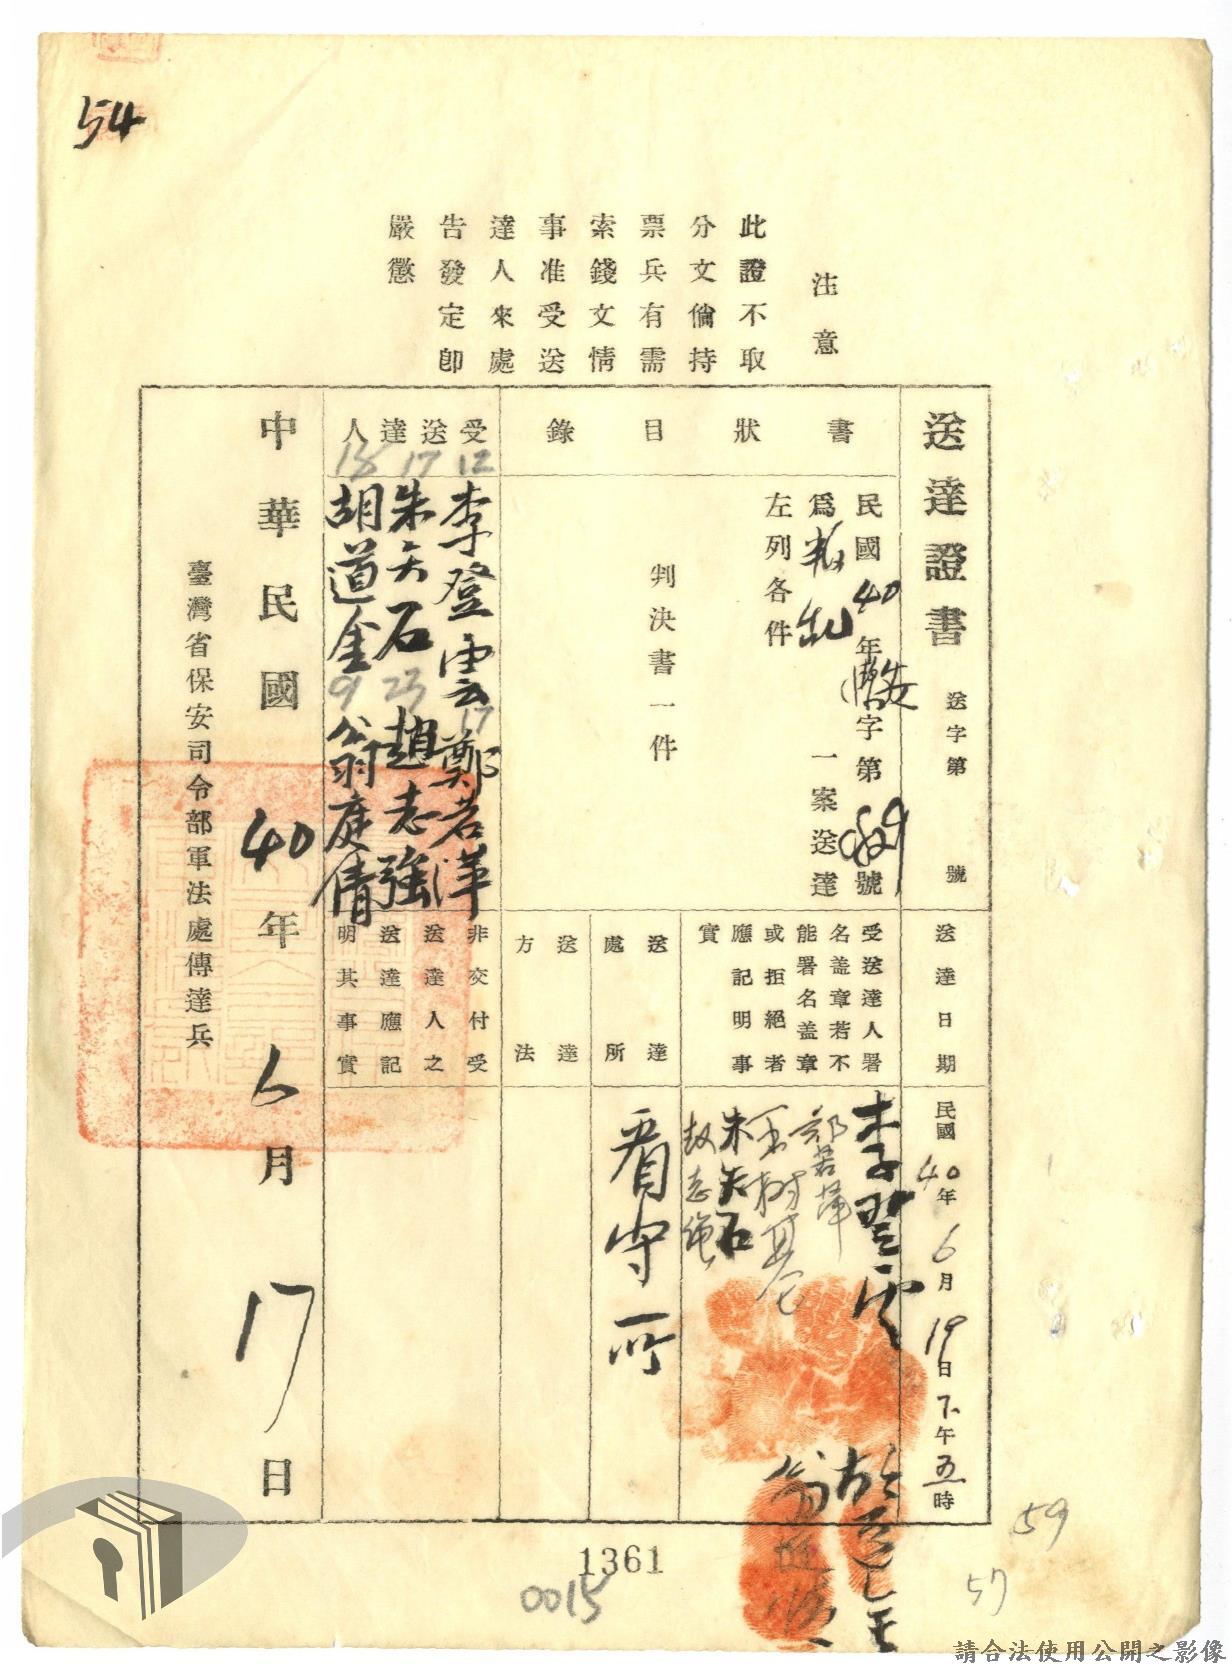 54
注意
此證不取
分文倘持
票兵有需
索錢文情
事准受送
達人來處
告發定即
嚴懲
送達證書
送字第 號
書狀目錄
民國40年 字第 號
爲叛乱一案送達
左列各件
判決書一件
受送達人
12 17 15
李登雲 17 鄭若萍
朱矢石 23 趙志強
胡道金 9 翁庭倩
送達日期
民國40年6月19日下午五時
受送達人署
名盖章若不
能署名盖章
或拒絕者
應記明事
實
李登雲
朱矢石
送達處所
看守所
送達方法
非交付受
送達人之
送達應記
明其事實
中華民國40年6月17日
臺灣省保安司令部軍法處傳達兵
1361
0015
59
57
請合法使用公開之影像